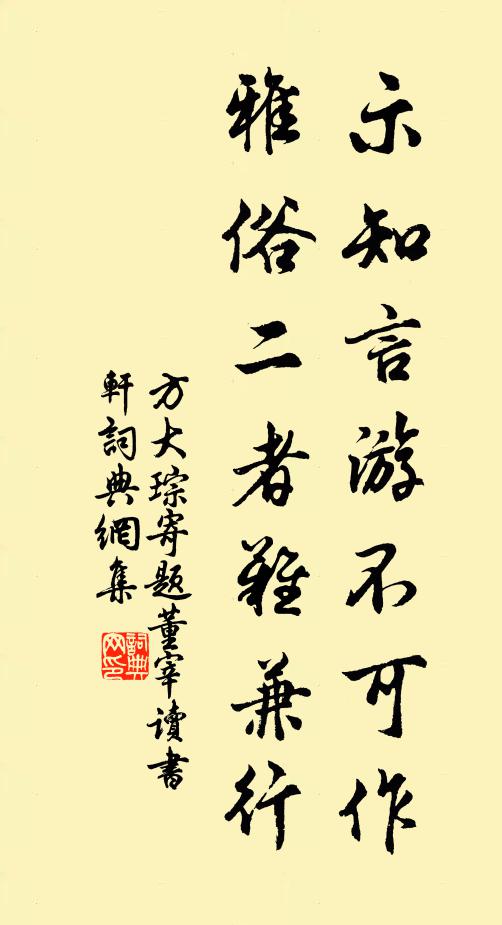 示知言游不可作
雅俗二者難兼行
方大琮寄題董宰讀書
軒詞典網集
詞典網印